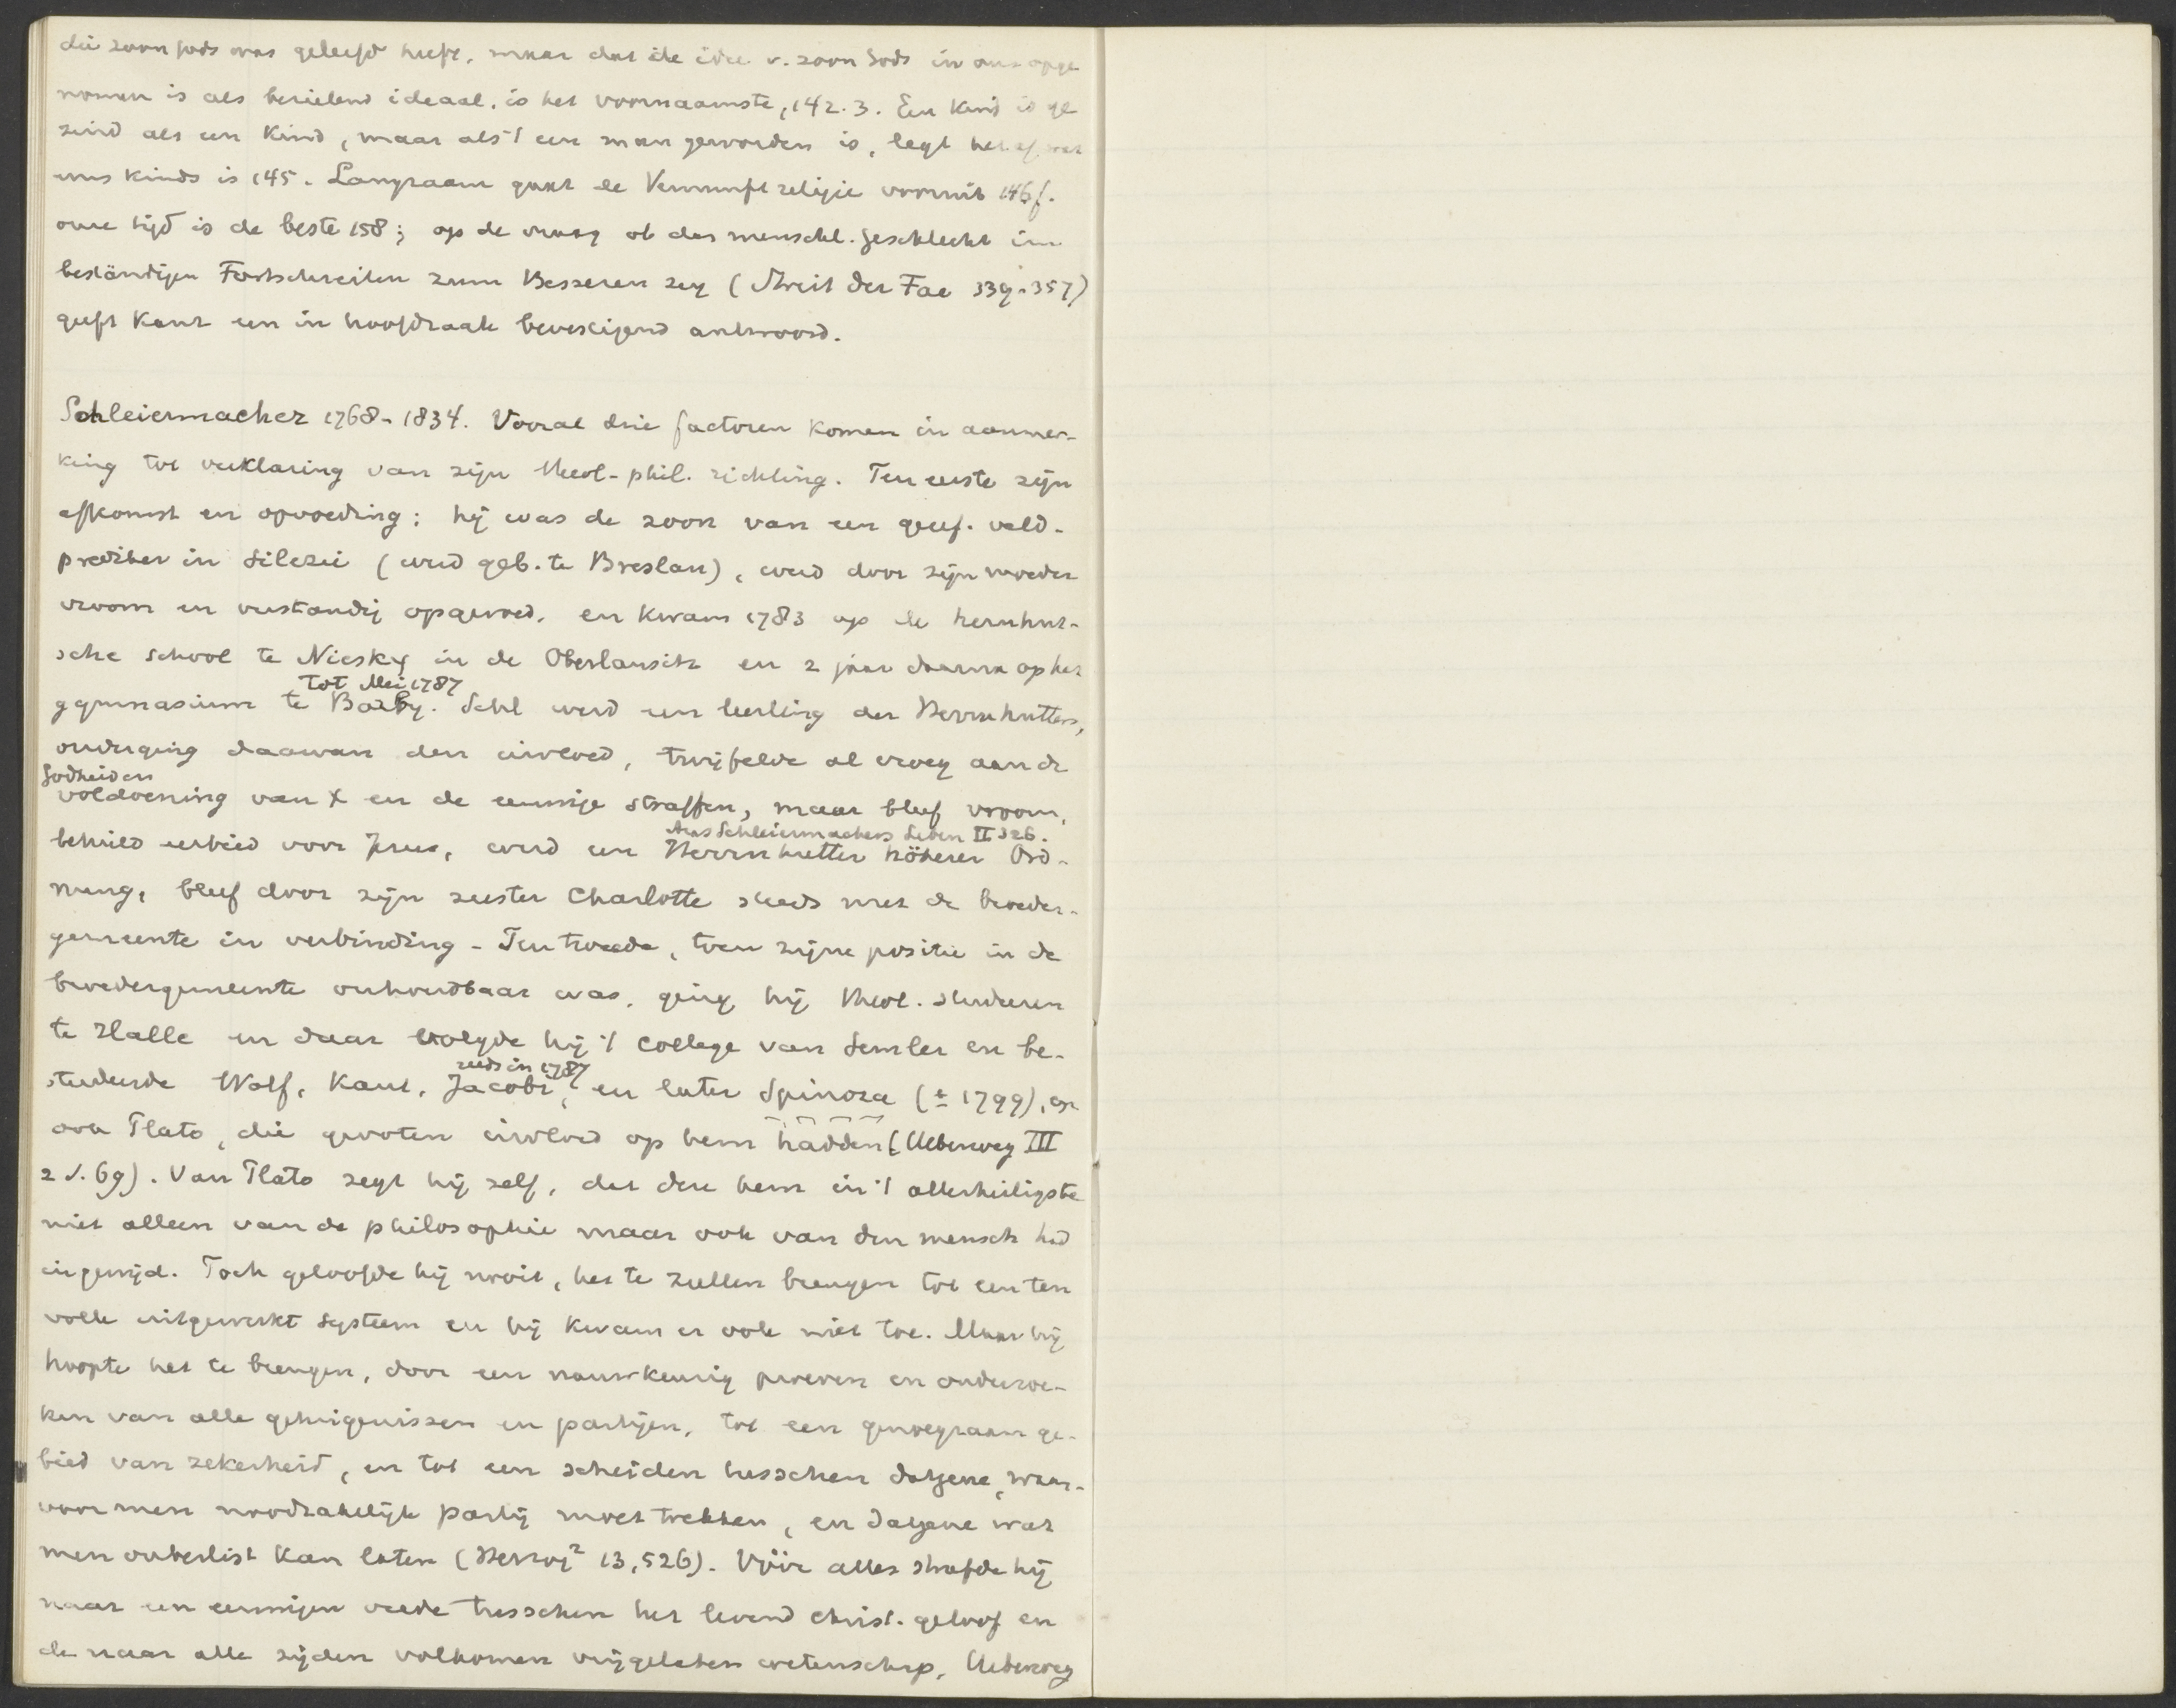 die zoon Gods was geleefd heeft, maar dat de idee v. zoon Gods in ons opge
nomen is als bezielend ideaal, is het voornaamste, 142.3. Een kind is ge
zind als een kind, maar als 't een man geworden is, legt het af wat
eens kinds is 145. Langzaam gaat de Vernunftreligie vooruit 146f.
onze tijd is de beste 158; op de vraag ob das menschl. Geschlecht im
beständigen Fortschreiten zum Besseren sey (Streit der Fac 339-357)
geeft Kant een in hoofdzaak bevestigend antwoord.
Schleiermacher 1768-1834. Vooral drie factoren komen in aanmer-
king tot verklaring van zijn theol-phil. richting. Ten eerste zijn
afkomst en opvoeding: hij was de zoon van een geref. veld-
prediker in Silezië (werd geb. te Breslau), werd door zijn moeder
vroom en verstandig opgevoed, en kwam 1783 op de hernhut-
sche school te Niesky in de Oberlausitz en 2 jaar daarna op het
tot Mei 1787
gymnasium te Barby. Schl werd een leerling der Herrnhutters,
onderging daarvan den invloed, twijfelde al vroeg aan de
Godheid en
voldoening van X en de eeuwige straffen, maar bleef vroom,
Aus Schleiermachers Leben II 326.
behield eerbied voor Jezus, werd een Herrnhutter höherer Ord-
nung, bleef door zijn zuster Charlotte steeds met de broeder-
gemeente in verbinding - Ten tweede, toen zijne positie in de
broedergemeente onhoudbaar was, ging hij theol. studeeren
te Halle en daar volgde hij 't college van Semler en be-
reeds in 1787
studeerde Wolf, Kant, Jacobi, en later Spinoza (± 1799), en
ook Plato, die grooten invloed op hem hadden (Ueberweg III
2 S. 69). Van Plato zegt hij zelf, dat deze hem in 't allerheiligste
niet alleen van de philosophie maar ook van den mensch had
ingewijd. Toch geloofde hij nooit, het te zullen brengen tot een ten
volle uitgewerkt systeem en hij kwam er ook niet toe. Maar hij
hoopte het te brengen, door een nauwkeurig proeven en onderzoe-
ken van alle getuigenissen en partijen, tot een genoegzaam ge-
bied van zekerheid, en tot een scheiden tusschen datgene, waar-
voor men noodzakelijk partij moet trekken, en datgene wat
men onbeslist kan laten (Herzog² 13,526). Vóór alles streefde hij
naar een eeuwigen vrede tusschen het levend christ. geloof en
de naar alle zijden volkomen vrijgelaten wetenschap, Ueberweg